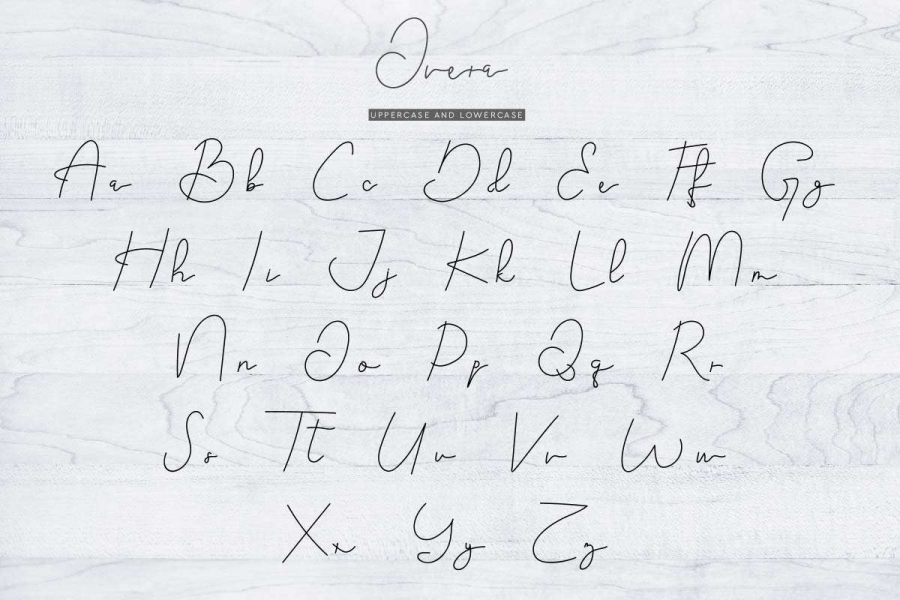 Overa
UPPERCASE AND LOWERCASE
Aa Bb Cc Dd Ee Ff Gg
Hh Ii Jj Kk Ll Mm
Nn Oo Pp Qq Rr
Ss Tt Uu Vv Ww
Xx Yy Zz